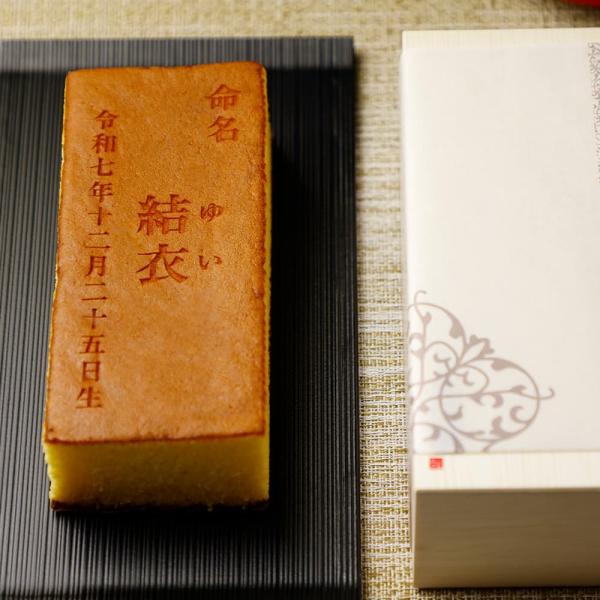 命名
ゆい
結衣
令和七年十二月二十五日生